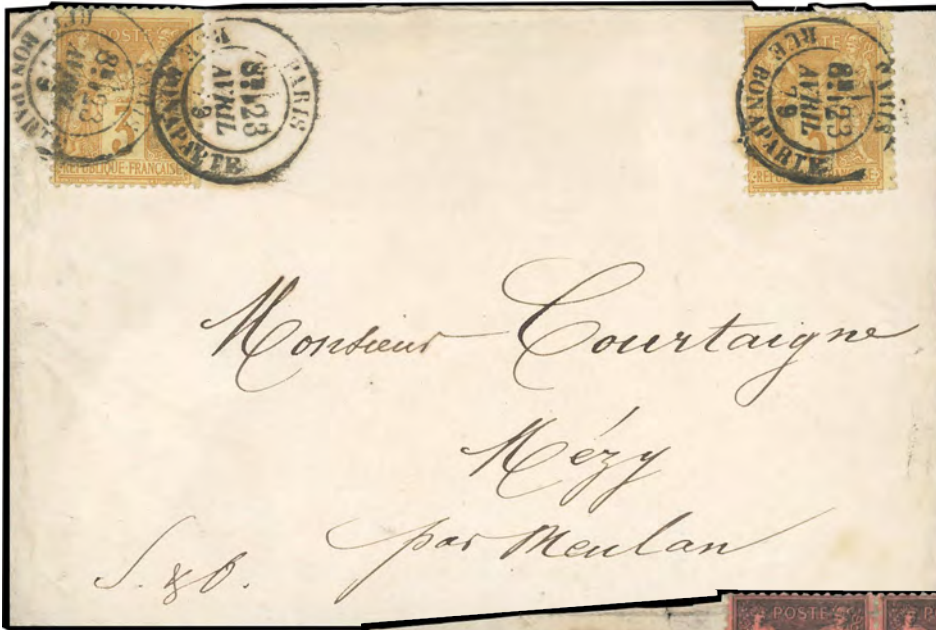 POSTE
3
RÉPUBLIQUE-FRANÇAISE
PARIS
8E 23
AVRIL
79
RUE BONAPARTE
POSTE
3
PARIS
8E 23
AVRIL
79
RUE BONAPARTE
Monsieur Courtaigne
Mézy
par Meulan
S. & O.
POSTES